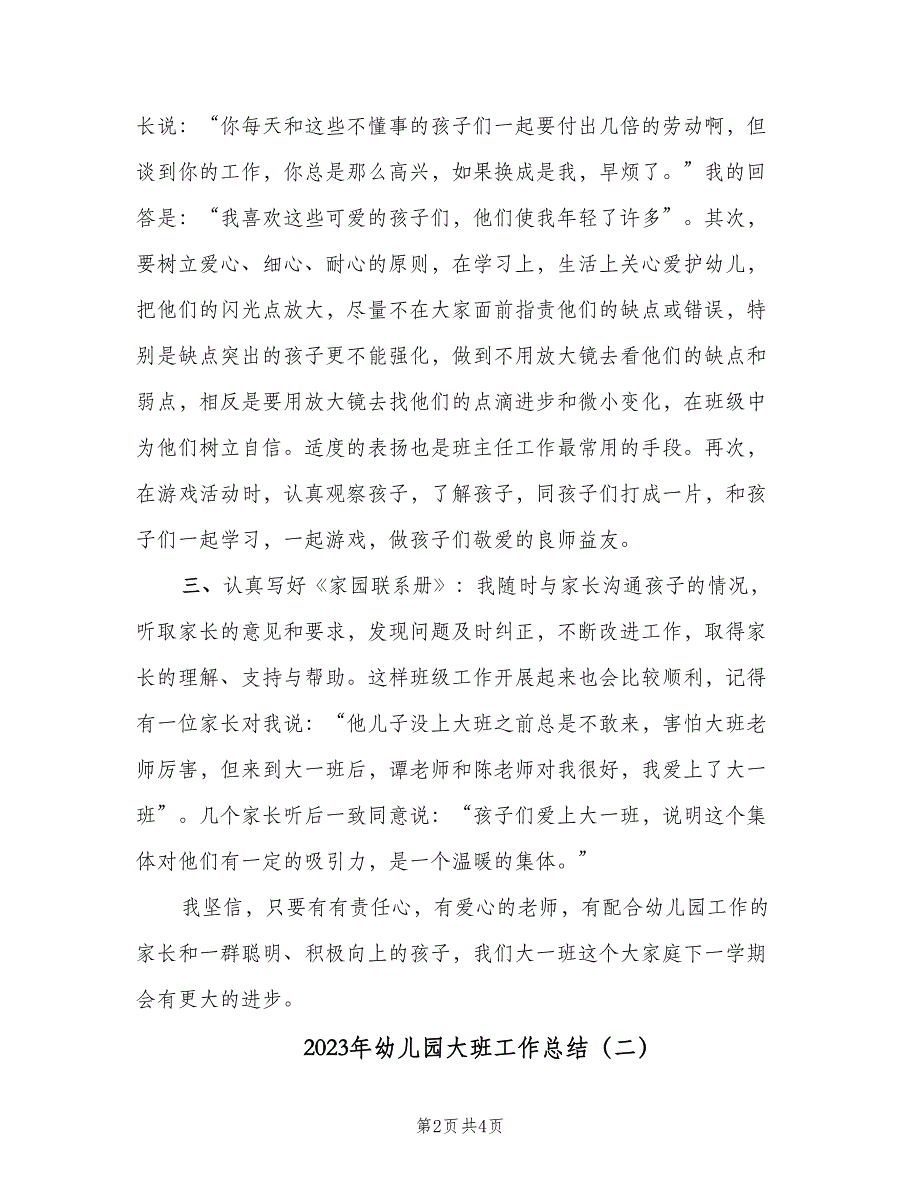 长说：“你每天和这些不懂事的孩子们一起要付出几倍的劳动啊，但
谈到你的工作，你总是那么高兴，如果换成是我，早烦了。”我的回
答是：“我喜欢这些可爱的孩子们，他们使我年轻了许多”。其次，
要树立爱心、细心、耐心的原则，在学习上，生活上关心爱护幼儿，
把他们的闪光点放大，尽量不在大家面前指责他们的缺点或错误，特
别是缺点突出的孩子更不能强化，做到不用放大镜去看他们的缺点和
弱点，相反是要用放大镜去找他们的点滴进步和微小变化，在班级中
为他们树立自信。适度的表扬也是班主任工作最常用的手段。再次，
在游戏活动时，认真观察孩子，了解孩子，同孩子们打成一片，和孩
子们一起学习，一起游戏，做孩子们敬爱的良师益友。
三、认真写好《家园联系册》：我随时与家长沟通孩子的情况，
听取家长的意见和要求，发现问题及时纠正，不断改进工作，取得家
长的理解、支持与帮助。这样班级工作开展起来也会比较顺利，记得
有一位家长对我说：“他儿子没上大班之前总是不敢来，害怕大班老
师厉害，但来到大一班后，谭老师和陈老师对我很好，我爱上了大一
班”。几个家长听后一致同意说：“孩子们爱上大一班，说明这个集
体对他们有一定的吸引力，是一个温暖的集体。”
我坚信，只要有有责任心，有爱心的老师，有配合幼儿园工作的
家长和一群聪明、积极向上的孩子，我们大一班这个大家庭下一学期
会有更大的进步。
2023年幼儿园大班工作总结（二）
第2页 共4页